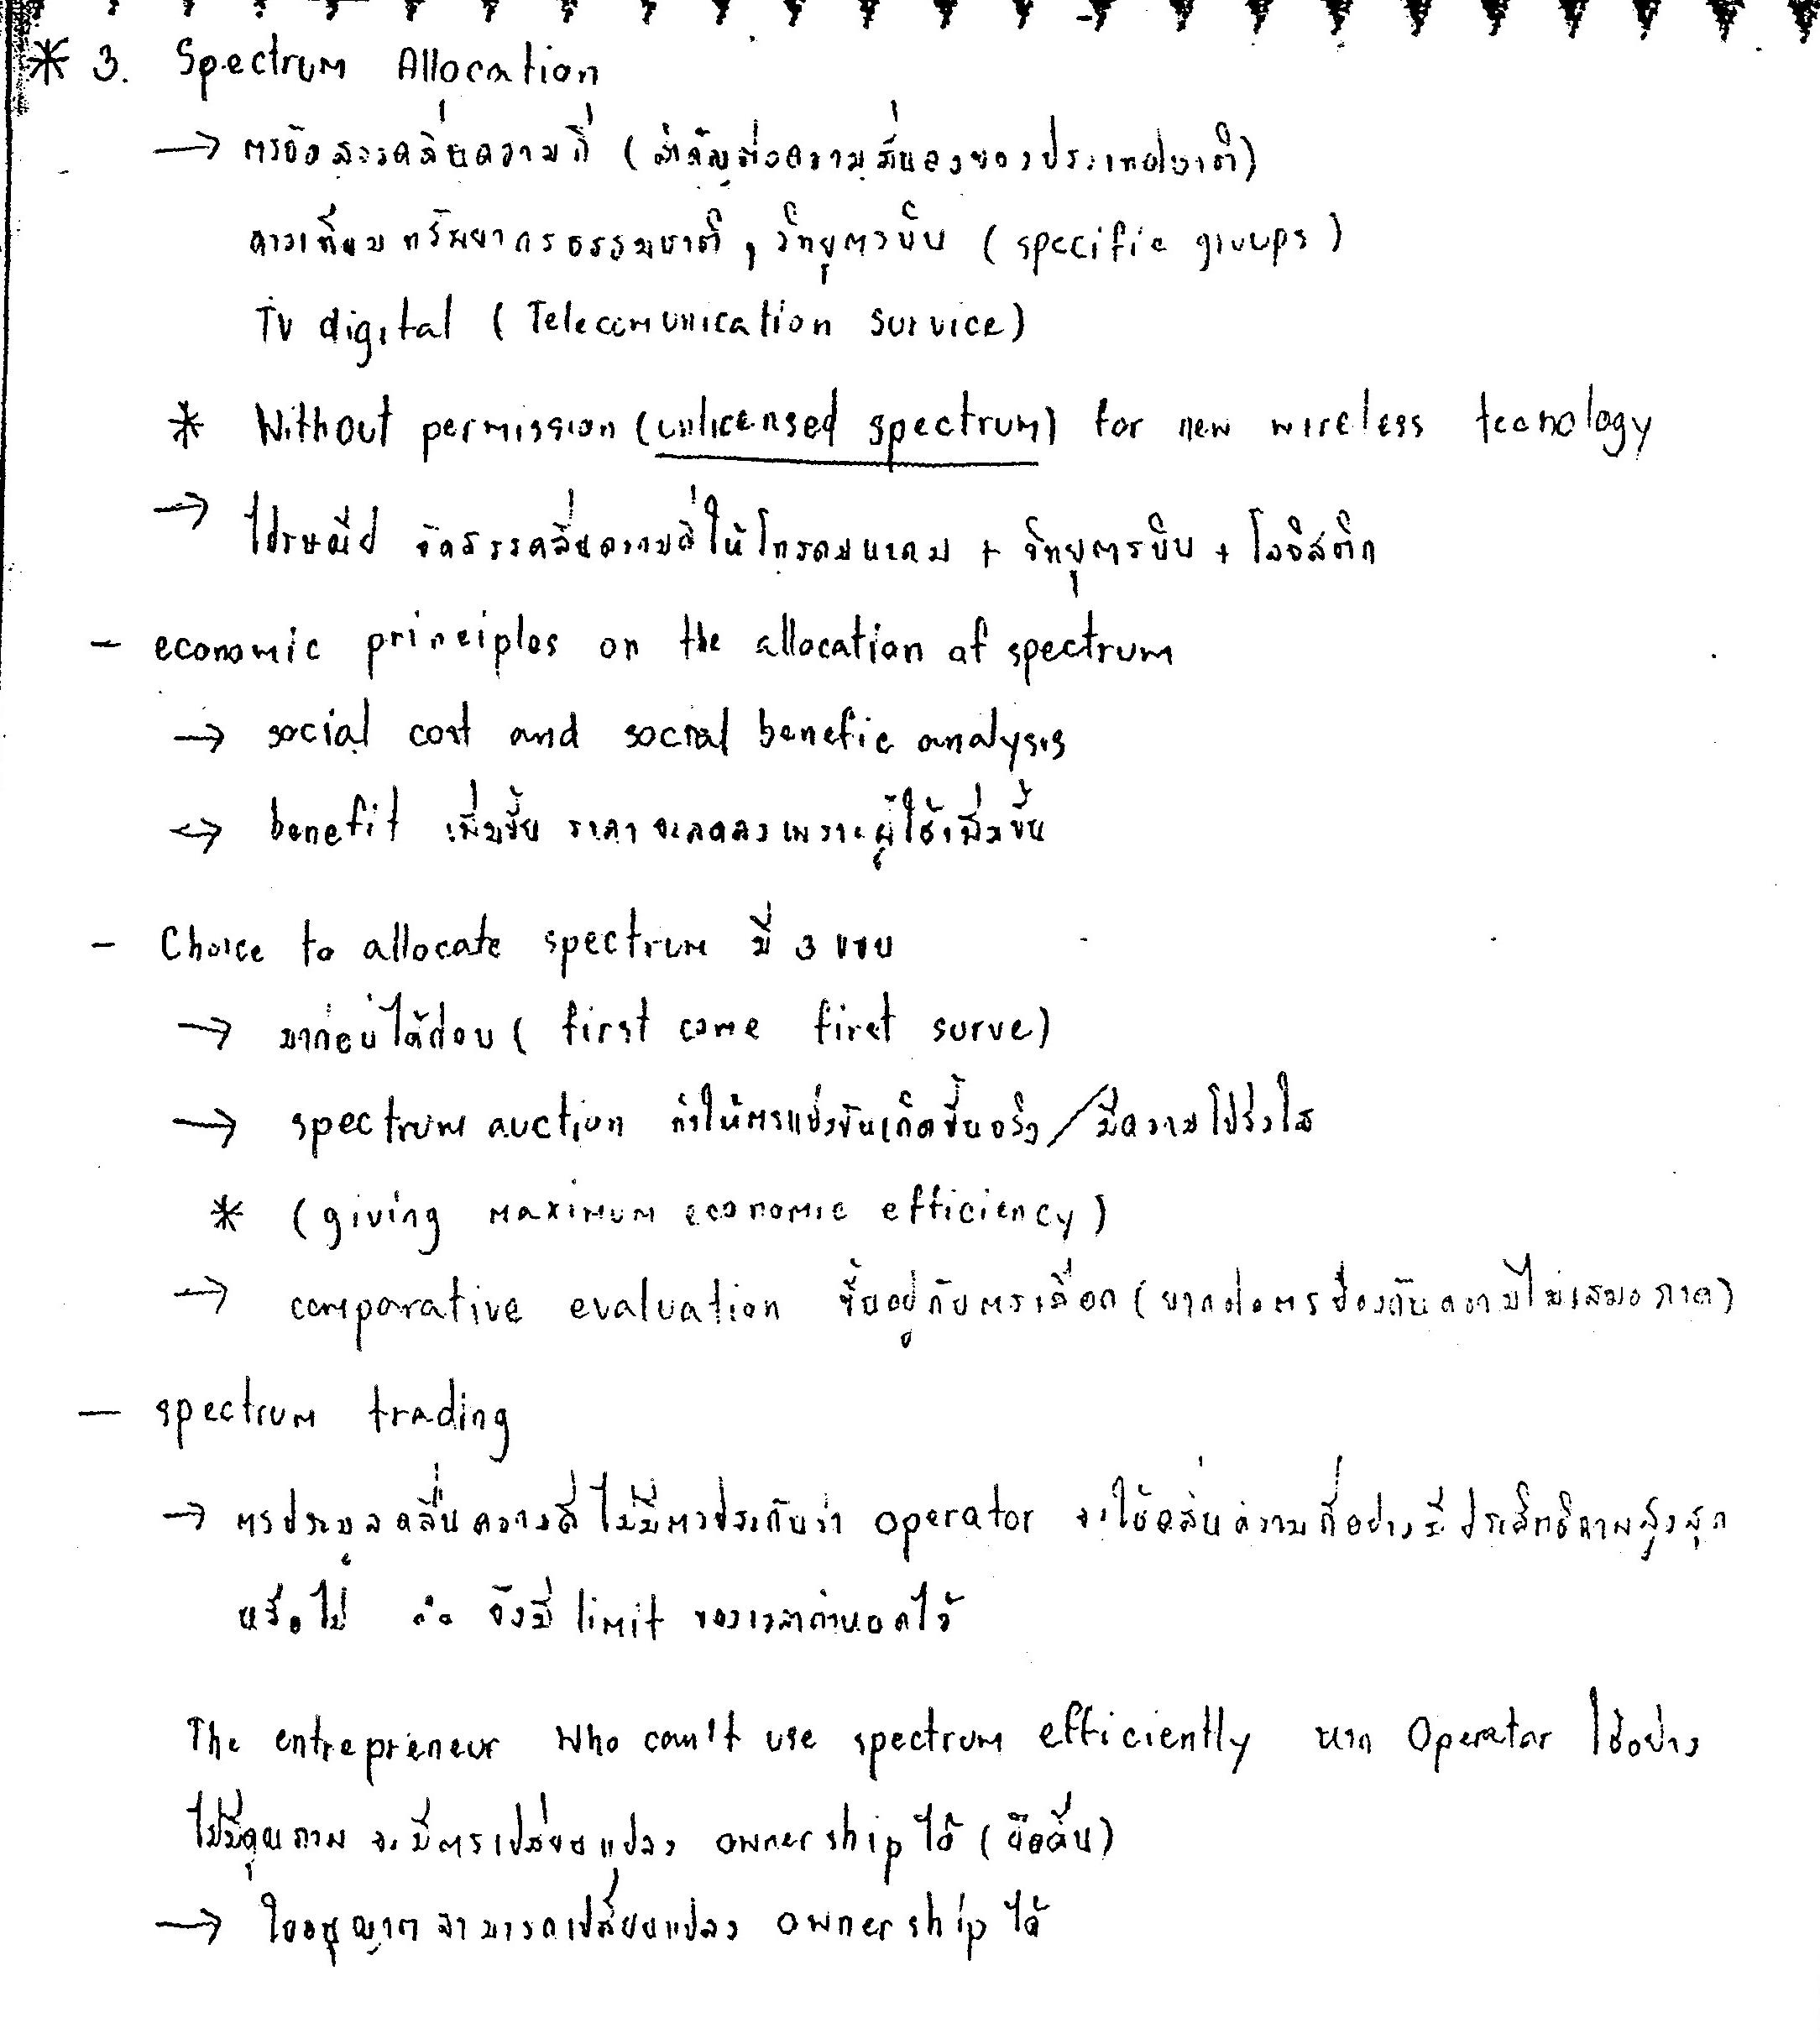 * 3. Spectrum Allocation
→ การจัดสรรคลื่นความถี่ (สำคัญต่อความมั่นคงของประเทศชาติ)
ดาวเทียม ทรัพยากรธรรมชาติ , วิทยุการบิน (specific groups)
TV digital (Telecomunication survice)
* Without permission (unlicensed spectrum) for new wireless tecnology
→ ไปรษณีย์ จัดสรรคลื่นความถี่ให้โทรคมนาคม + วิทยุการบิน + โลจิสติก
- economic principles on the allocation of spectrum
→ social cost and social benefic analysis
→ benefit เพิ่มขึ้น ราคาจะลดลงเพราะผู้ใช้เพิ่มขึ้น
- Choice to allocate spectrum มี 3 แบบ
→ มาก่อนได้ก่อน (first come first surve)
→ spectrum auction ทำให้การแข่งขันเกิดขึ้นจริง / มีความโปร่งใส
* (giving maximum economic efficiency)
→ comparative evaluation ขึ้นอยู่กับการเลือก (ยากต่อการป้องกันความไม่เสมอภาค)
- spectrum trading
→ การประมูลคลื่นความถี่ ไม่มีการประกันว่า operator จะใช้คลื่นความถี่อย่างมีประสิทธิภาพสูงสุด
หรือไม่ ∴ จึงมี limit ของเวลากำหนดไว้
The entrepreneur who can't use spectrum efficiently หาก Operator ใช้อย่าง
ไม่มีคุณภาพ จะมีการเปลี่ยนแปลง ownership ได้ (ยึดคืน)
→ ใบอนุญาตสามารถเปลี่ยนแปลง ownership ได้